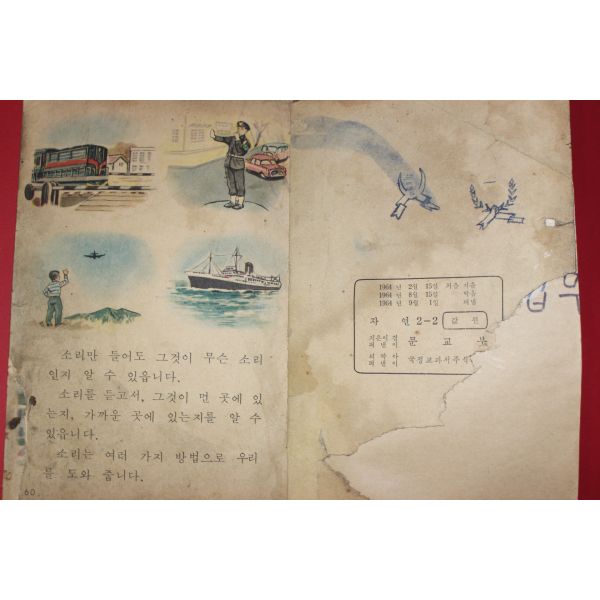 소리만 들어도 그것이 무슨 소리
인지 알 수 있읍니다.
소리를 듣고서, 그것이 먼 곳에 있
는지, 가까운 곳에 있는지를 알 수
있읍니다.
소리는 여러 가지 방법으로 우리
를 도와 줍니다.
60
1964 년 2월 15일
1964 년 8월 15일
1964 년 9월 1일 펴냄
자 연 2—2 값 원
지은이 겸
펴낸이 문 교 부
국정교과서주식